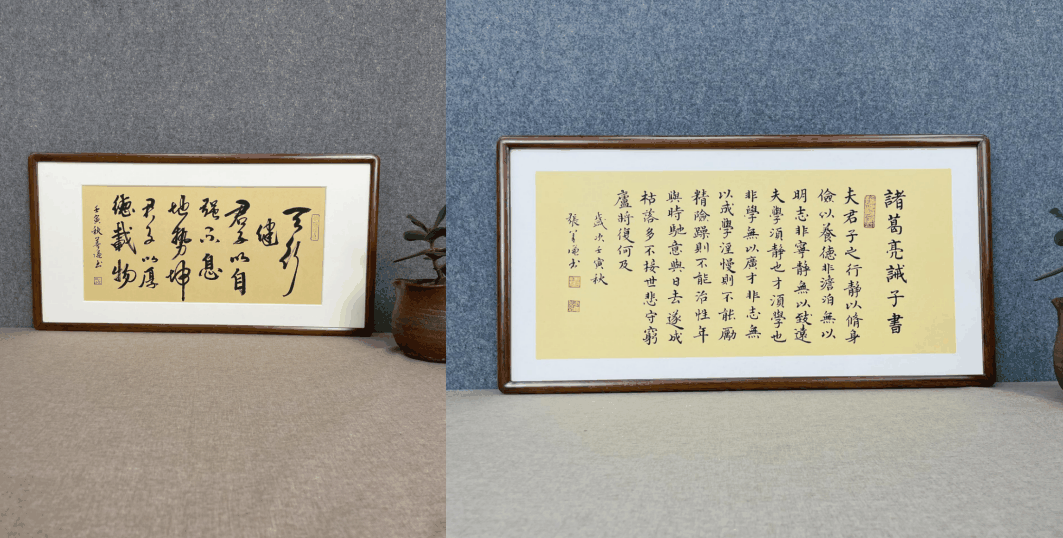 天行
健
君子以自
强不息
地勢坤
君子以厚
德載物
壬寅秋 书
諸葛亮誡子書
夫君子之行靜以脩身
儉以養德非澹泊無以
明志非寧靜無以致遠
夫學須靜也才須學也
非學無以廣才非志無
以成學淫慢則不能勵
精險躁則不能治性年
與時馳意與日去遂成
枯落多不接世悲守窮
廬將復何及
歲次壬寅秋
張 书